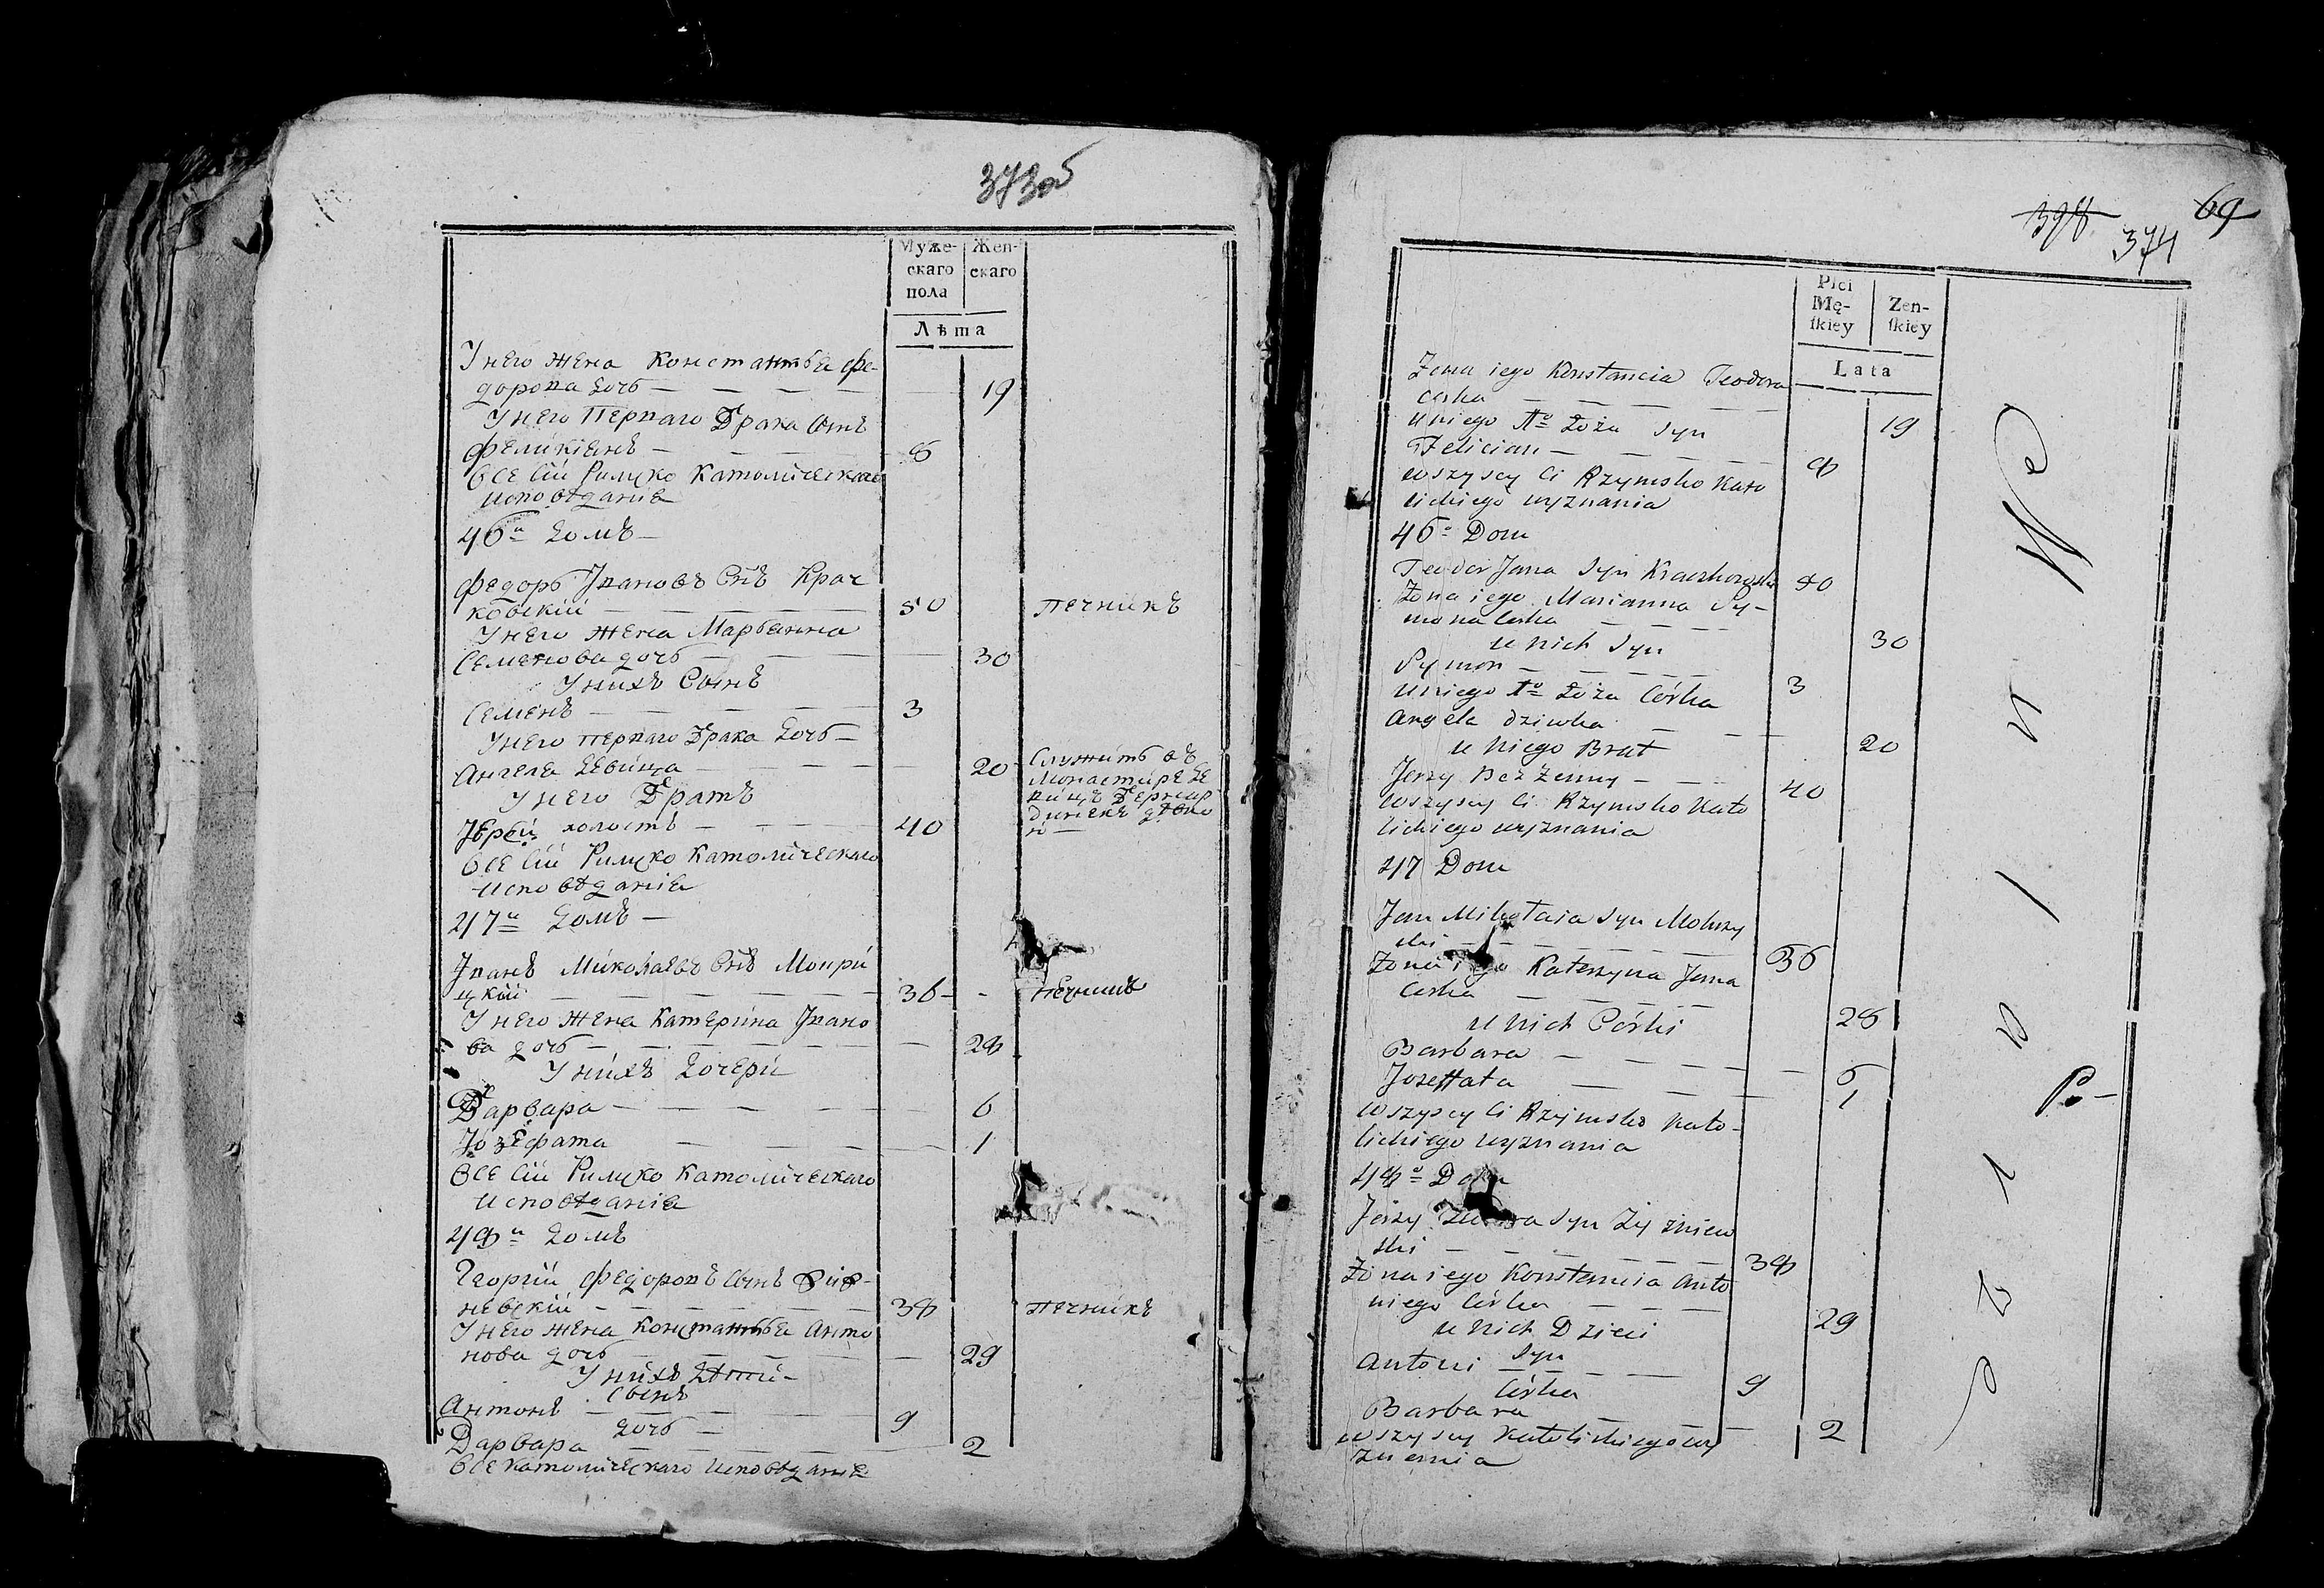 373об
Муже-
скаго
пола
Жен-
скаго
Лѣта
У него жена Константыа Фе-
дорова дочь — 19
У него Перваго Брака Сынъ
Феликіянъ — 8
Все сіи Римско Католическаго
исповѣданіа
46й домъ —
Федоръ Ивановъ Снъ Крач
ковскій — 50 печникъ
У него жена Марьанна
Семенова дочь — 30
У нихъ Сынъ
Семенъ — 3
У него перваго Брака дочь —
Ангела девица — 20 Служитъ въ
Монастирѣ де
вицъ Бернар
динекъ
У него Братъ
Юрьи холостъ — 40
Все сіи Римско Католическаго
исповѣданіа
47й домъ —
Иванъ Миколаевъ Снъ Мокри
цкій — 36 - печникъ
У него жена Катерина Ивано
ва дочь — 28
У нихъ дочери
Варвара — 6
Юзефата — 1
Все сіи Римско Католическаго
исповѣданіа
48й домъ
Георгій Федоровъ Сынъ
невскій — 38 печникъ
У него жена Константыа Анто
нова дочь — 29
У нихъ дѣти —
Сынъ
Антонъ — 9
дочь —
Варвара — 2
все католическаго исповѣданіе
398 374 69
Płci
Mę-
skiey
Zen-
skiey
Lata
Zona iego Konstancia Teodora
corka — 19
u niego 1o Łoża Syn
Felician — 8
wszyscy ci Rzymsko Kato
lickiego wyznania
46o Dom
Teodor Jana Syn Kraczkowski 50
Zona iego Marianna Sy-
mona Corka — 30
u nich Syn
Symon — 3
u niego 1o Łoża Córka
Angela dziwka — 20
u niego Brat
Jerzy Bez Zenny — 40
wszyscy ci Rzymsko Kato
lickiego wyznania
47 Dom
Jan Mikołaia Syn Mokrzy
cki — 36
Zona iego Katerzyna Jana
Corka — 28
u nich Córki
Barbara — 6
Jozeffata — 1
wszyscy ci Rzymsko Kato-
lickiego wyznania
48o Dom
Jerzy Syn Zyzniew
ski — 38
Zona iego Konstancia Anto
niego Córka — 29
u nich Dzieci
Syn
Antoni — 9
Córka
Barbara — 2
wszyscy Katolickiego wy
znania